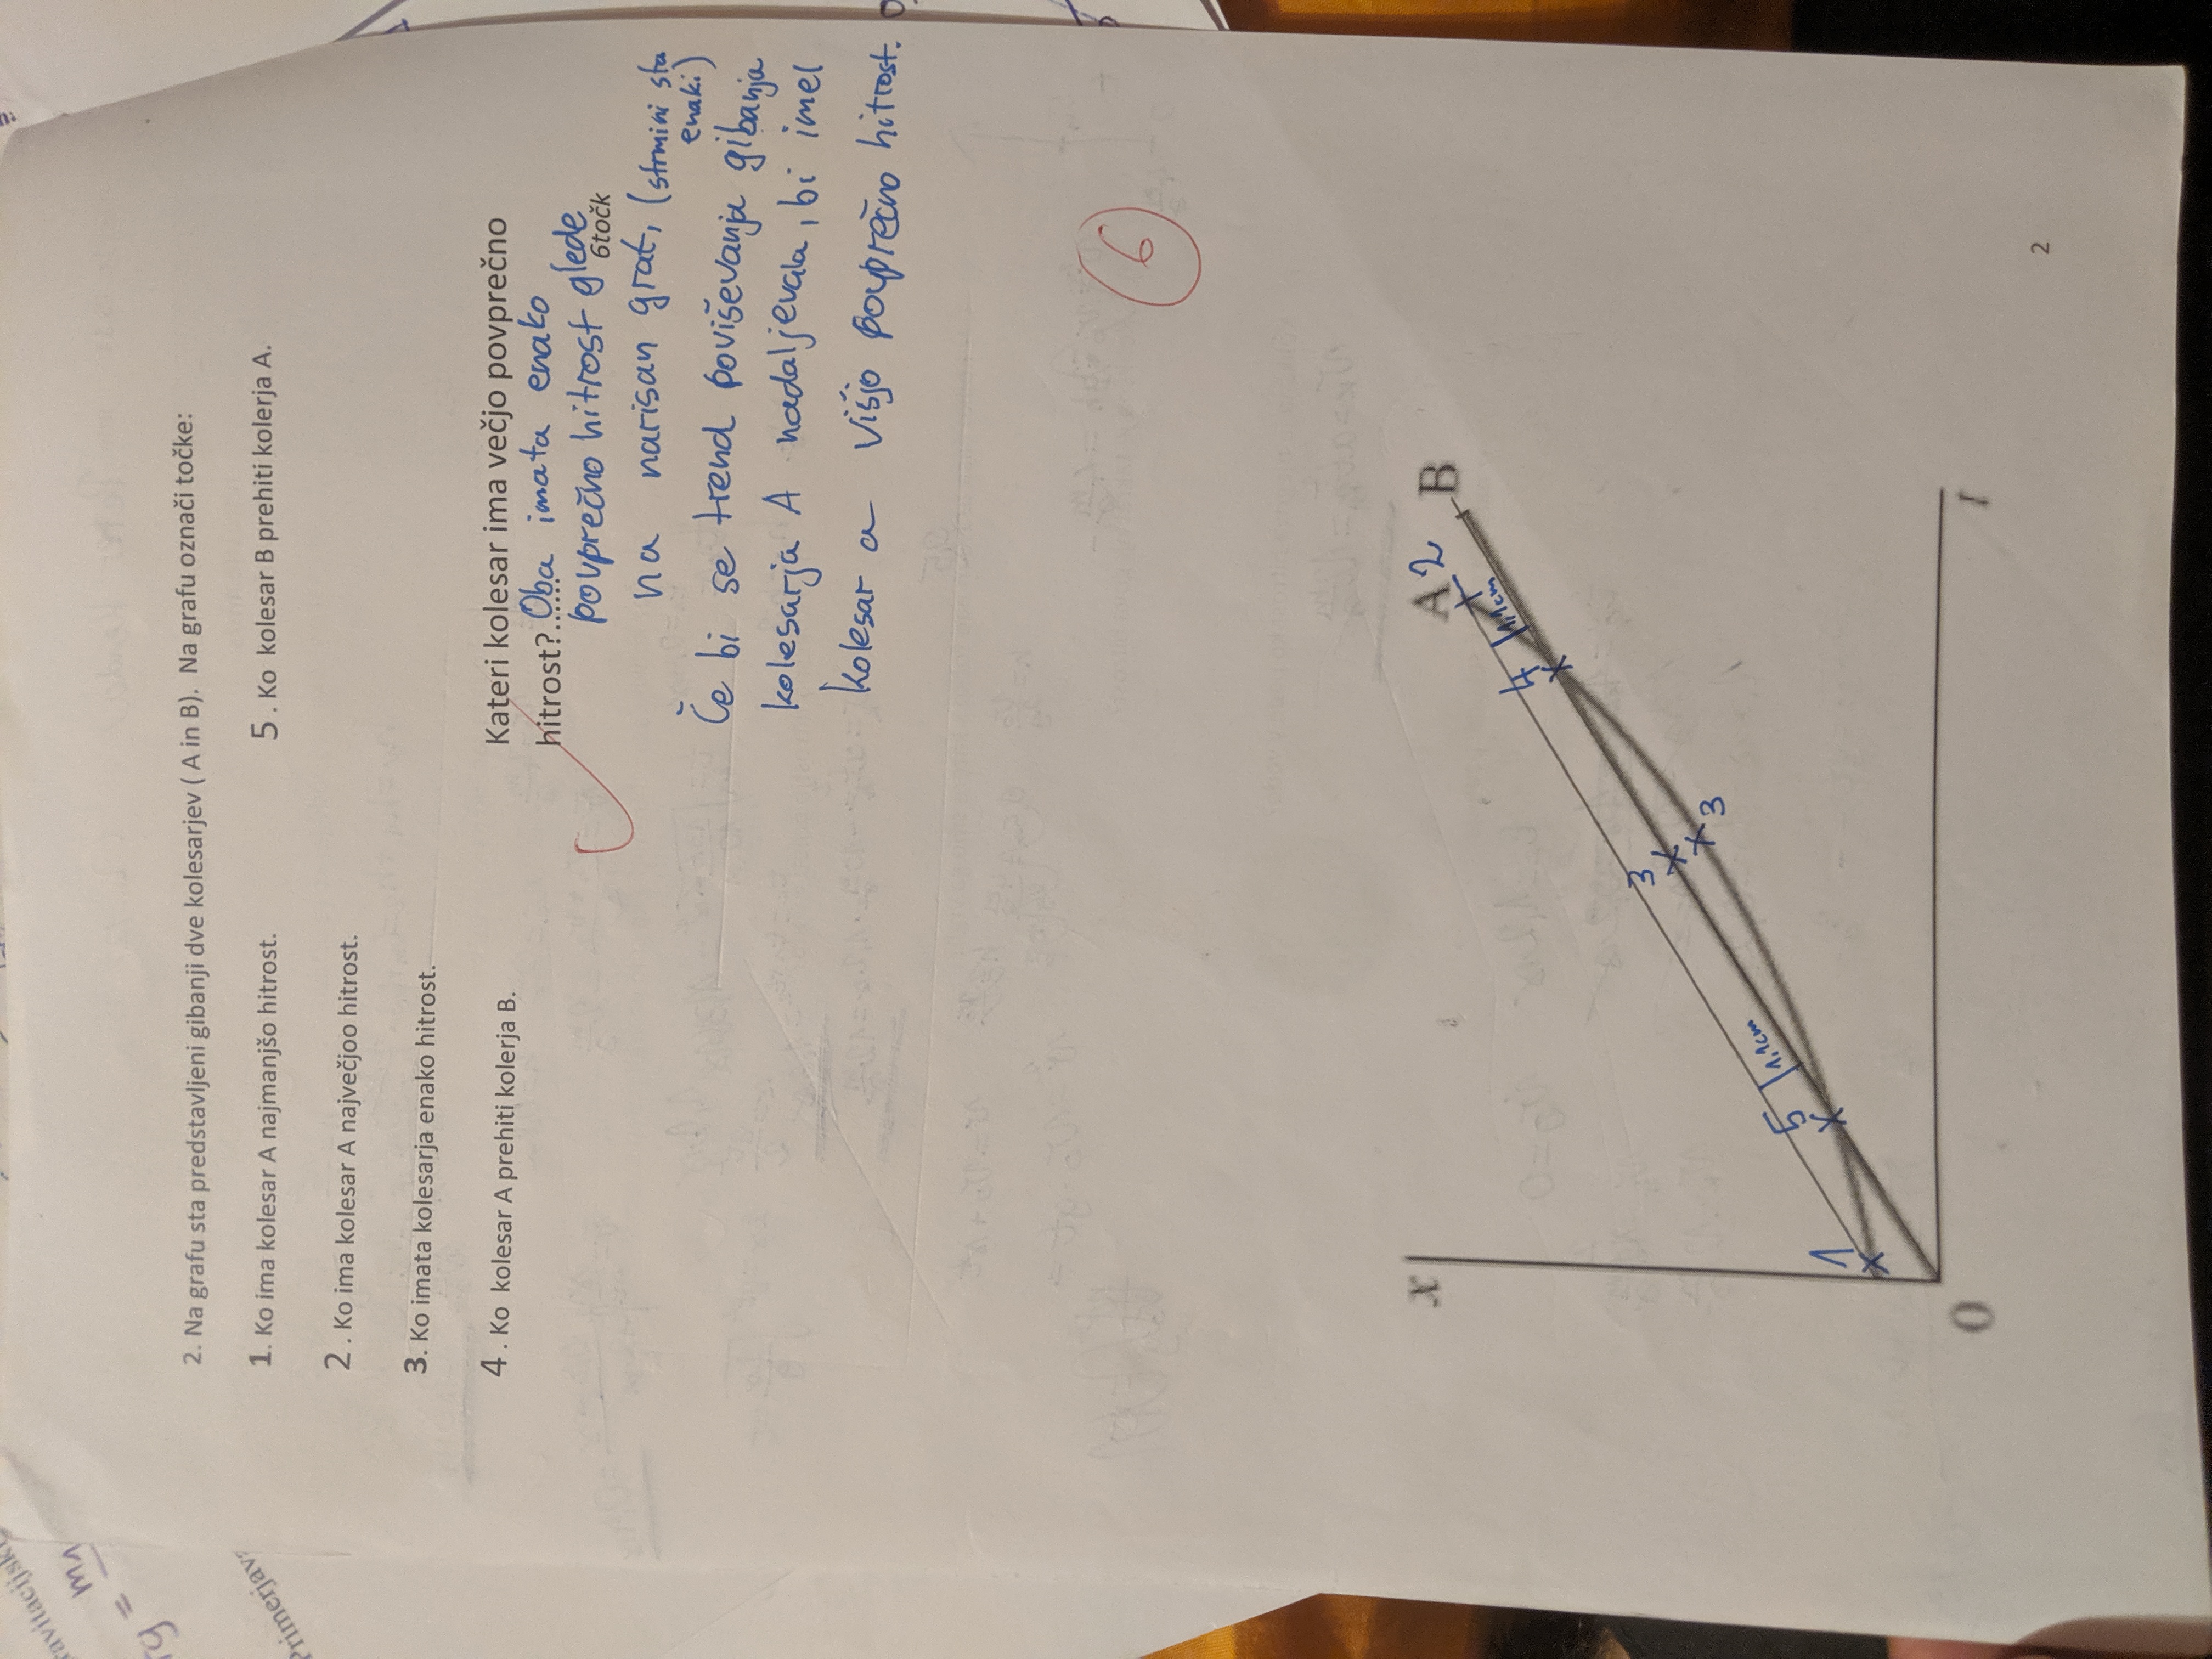 ravitacijski
m1
Fg =
Primerjav
2. Na grafu sta predstavljeni gibanji dve kolesarjev ( A in B). Na grafu označi točke:
1. Ko ima kolesar A najmanjšo hitrost.
5 . Ko kolesar B prehiti kolerja A.
2 . Ko ima kolesar A največjoo hitrost.
3. Ko imata kolesarja enako hitrost.
4 . Ko kolesar A prehiti kolerja B.
Kateri kolesar ima večjo povprečno
hitrost?...... Oba imata enako
povprečno hitrost glede
6točk
na narisan graf, (strmini sta
enaki)
Če bi se trend poviševanja gibanja
kolesarja A nadaljevala, bi imel
kolesar a višjo povprečno hitrost.
6
x
A 2
B
4
1,1cm
3
3
5
1,1cm
1
0
t
2